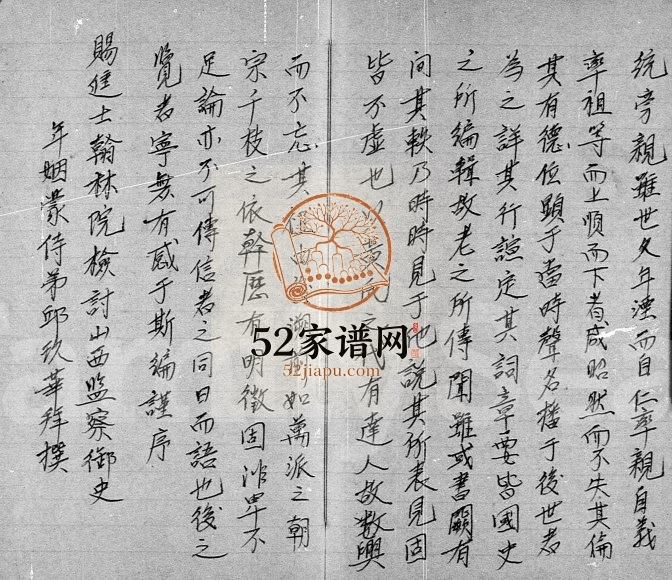 统旁親雖世久年湮而自仁率親自義
率祖等而上順而下者咸昭然而不失其倫
其有德位顯于當時聲名播于後世者
為之詳其行誼定其詞章要皆國史
之所編輯故老之所傳聞雖或書闕有
间其軼乃時時見于他說其所表見固
皆不虚也 有達人故数典
而不忘其 如萬派之朝
宗千枝之依幹歷有明徵固非卑不
足論亦不可傳信者之同日而語也後之
覽者寧無有感于斯編謹序
賜進士翰林院檢討山西監察御史
年姻蒙侍弟邱玖華拜撰
52家谱网
52jiapu.com